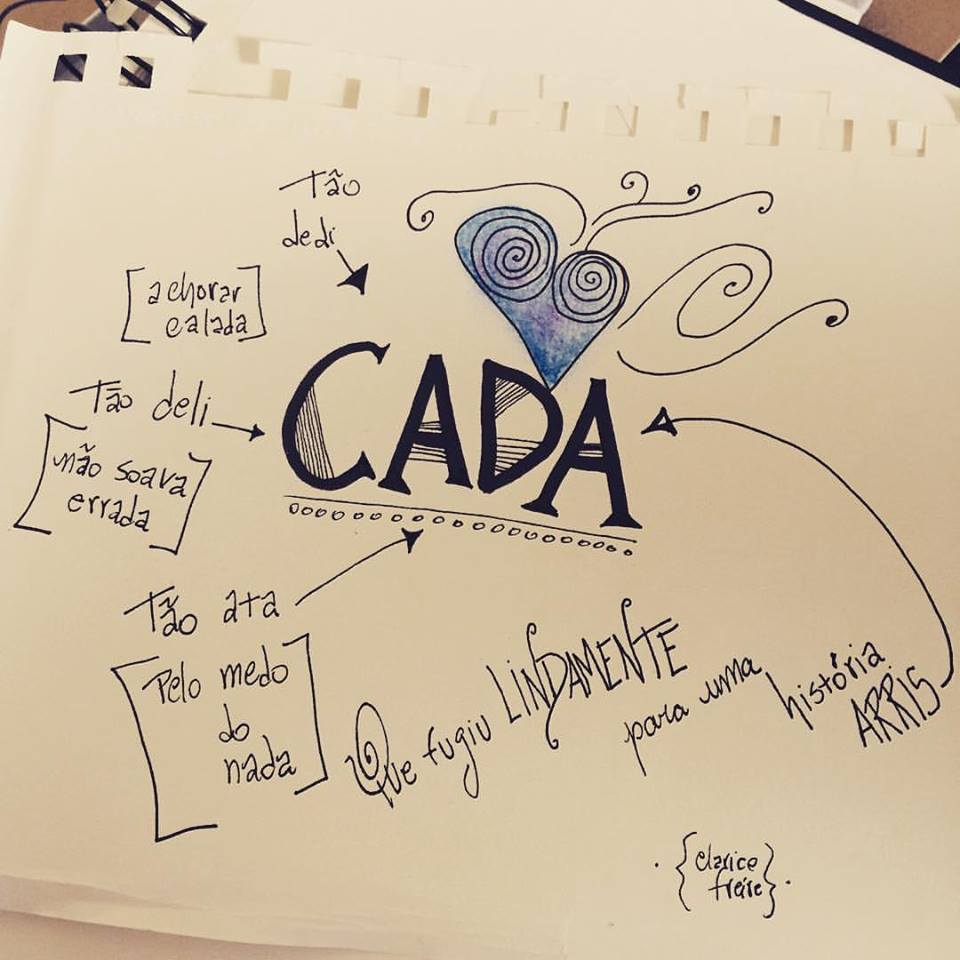 Tão
dedi
[a chorar
calada]
Tão deli
CADA
[não soava
errada]
Tão ata
[Pelo medo
do
nada]
Que fugiu LINDAMENTE
para uma
história
ARRIS
{clarice
freire}